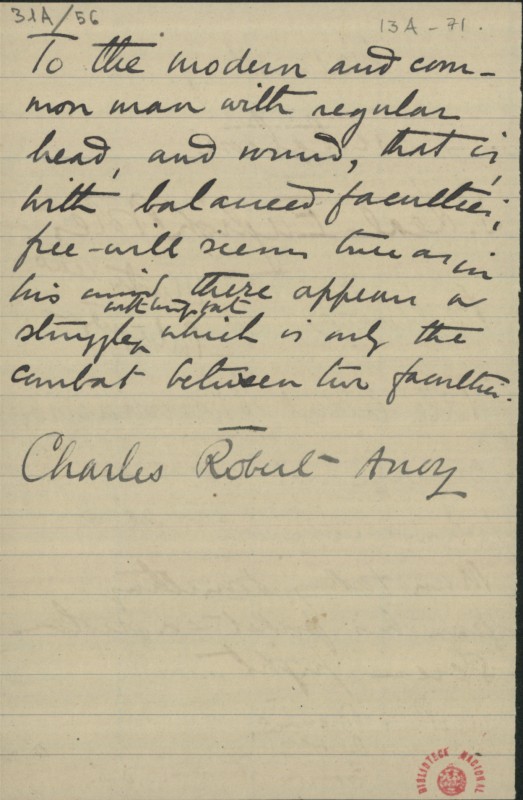 31A/56
13A-71.
To the modern and com-
mon man with regular
head, and round, that is,
with balanced faculties,
free-will seems true as in
his mind there appears a
without
struggle, which is only the
combat between two faculties.
Charles Robert Anon
BIBLIOTECA NACIONAL